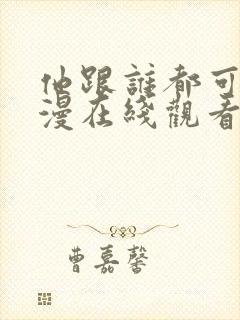 他跟誰都可
漫在綫觀看
曹嘉馨